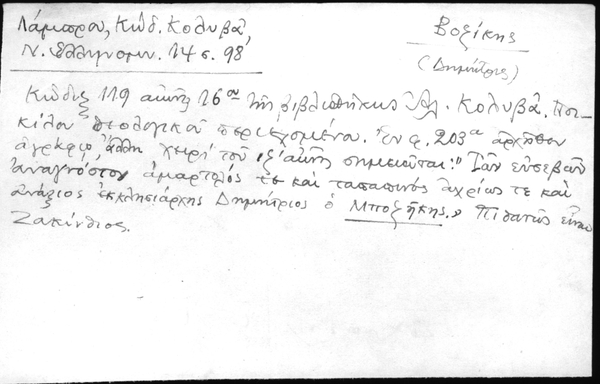 Λάμπρου, Κώδ. Κολυβᾶ,
Ν. Ἑλληνομν. 14 σ. 98
Βοζίκης
(Δημήτριος)
Κῶδιξ 119 αἰῶνος 16ου τῆς βιβλιοθήκης Ἀλ. Κολυβᾶ. Ποι-
κίλου θεολογικοῦ περιεχομένου. Ἐν φ. 203α ἀρχῆθεν
ἀγράφῳ, ἄλλῃ χειρὶ τοῦ ιζʹ αἰῶνος σημειοῦται: "Τῶν εὐσεβῶν
ἀναγνόστον ἁμαρτολός τε καὶ ταπαπινός ἀχρίως τε καὶ
ἀνάξιος ἐκκλησιάρχης Δημήτριος ὁ Μποζήκης." Πιθανῶς εἶναι
Ζακύνθιος.